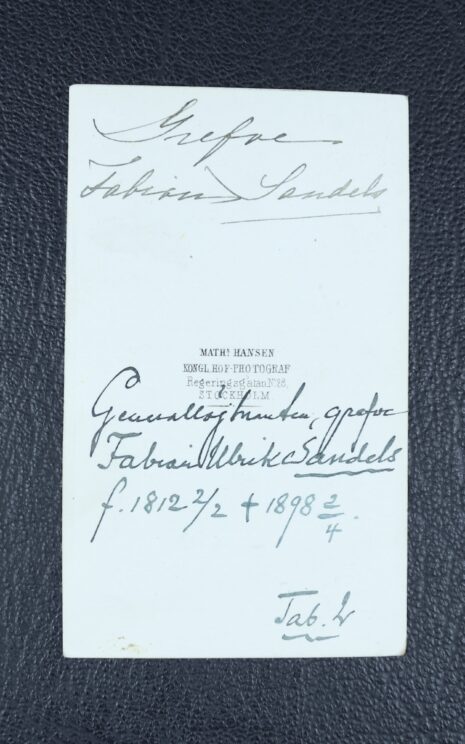 Grefve
Fabian Sandels
MATHS HANSEN
KONGL.HOF-PHOTOGRAF
Regeringsgatan No 28.
STOCKHOLM.
Generallöjtnanten, grefve
Fabian Ulrik Sandels
f. 1812 2/2 + 1898 2/4.
Tab.